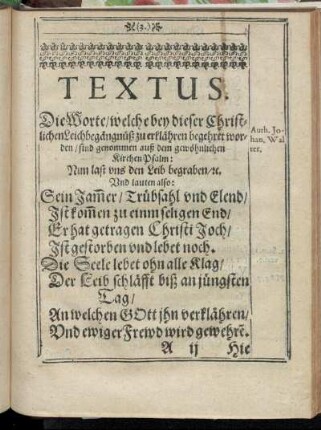 (3.)
TEXTUS.
Die Worte/welche bey dieser Christ-
lichen Leichbegängnüß zu erklähren begehret wor-
den/sind genommen auß dem gewöhnlichen
Kirchen Psalm:
Nun last vns den Leib begraben/ꝛc.
Vnd lauten also:
Auth. Jo-
han, Wal
ter,
Sein Jam̃er/Trübsahl vnd Elend/
Jst kom̃en zu einm seligen End/
Er hat getragen Christi Joch/
Jst gestorben vnd lebet noch.
Die Seele lebet ohn alle Klag/
Der Leib schläfft biß an jüngsten
Tag/
An welchen GOtt jhn verklähren/
Vnd ewiger Frewd wird gewehrẽ.
A ij Hie